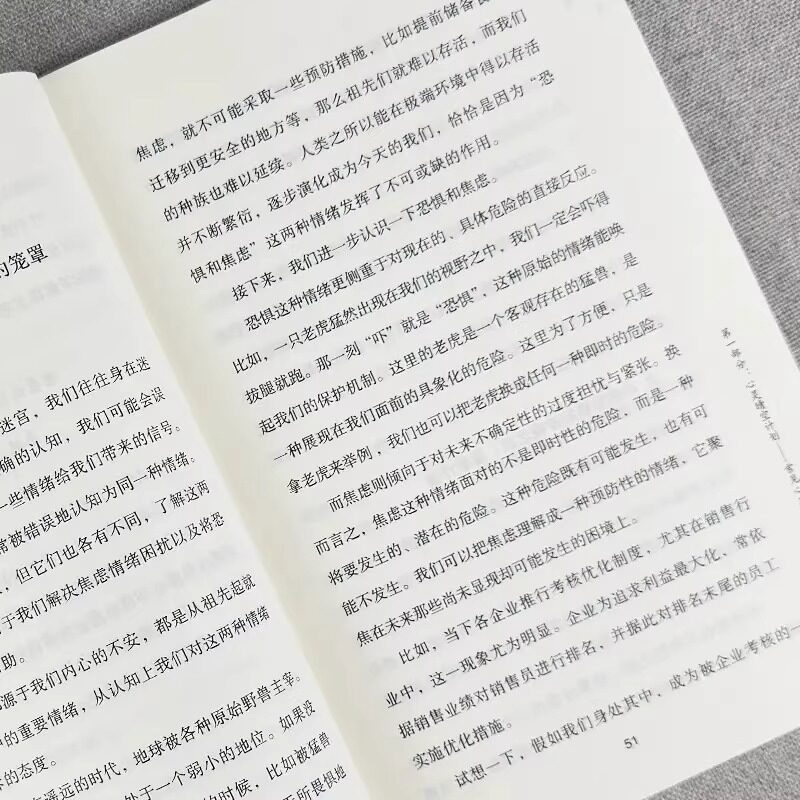 的笼罩
迷宫，我们往往身在迷
确的认知，我们可能会误
一些情绪给我们带来的信号。
常被错误地认知为同一种情绪。
，但它们也各有不同，了解这两
于我们解决焦虑情绪困扰以及将恐
助。
源于我们内心的不安，都是从祖先起就
的重要情绪，从认知上我们对这两种情绪
的态度。
遥远的时代，地球被各种原始野兽主宰。
处于一个弱小的地位。如果没
的时候，比如被猛兽
无所畏惧地
焦虑，就不可能采取一些预防措施，比如提前储备食
迁移到更安全的地方等，那么祖先们就难以存活，而我们
的种族也难以延续。人类之所以能在极端环境中得以存活
并不断繁衍，逐步演化成为今天的我们，恰恰是因为“恐
惧和焦虑”这两种情绪发挥了不可或缺的作用。
接下来，我们进一步认识一下恐惧和焦虑。
恐惧这种情绪更侧重于对现在的、具体危险的直接反应。
比如，一只老虎猛然出现在我们的视野之中，我们一定会吓得
拔腿就跑。那一刻“吓”就是“恐惧”，这种原始的情绪能唤
起我们的保护机制。这里的老虎是一个客观存在的猛兽，是
一种展现在我们面前的具象化的危险。这里为了方便，只是
拿老虎来举例，我们也可以把老虎换成任何一种即时的危险。
而焦虑则倾向于对未来不确定性的过度担忧与紧张。换
而言之，焦虑这种情绪面对的不是即时性的危险，而是一种
将要发生的、潜在的危险。这种危险既有可能发生，也有可
能不发生。我们可以把焦虑理解成一种预防性的情绪，它聚
焦在未来那些尚未显现却可能发生的困境上。
比如，当下各企业推行考核优化制度，尤其在销售行
业中，这一现象尤为明显。企业为追求利益最大化、常依
据销售业绩对销售员进行排名，并据此对排名末尾的员工
实施优化措施。
试想一下，假如我们身处其中，成为被企业考核的一
51
第一部分：心灵晴空计划——常见